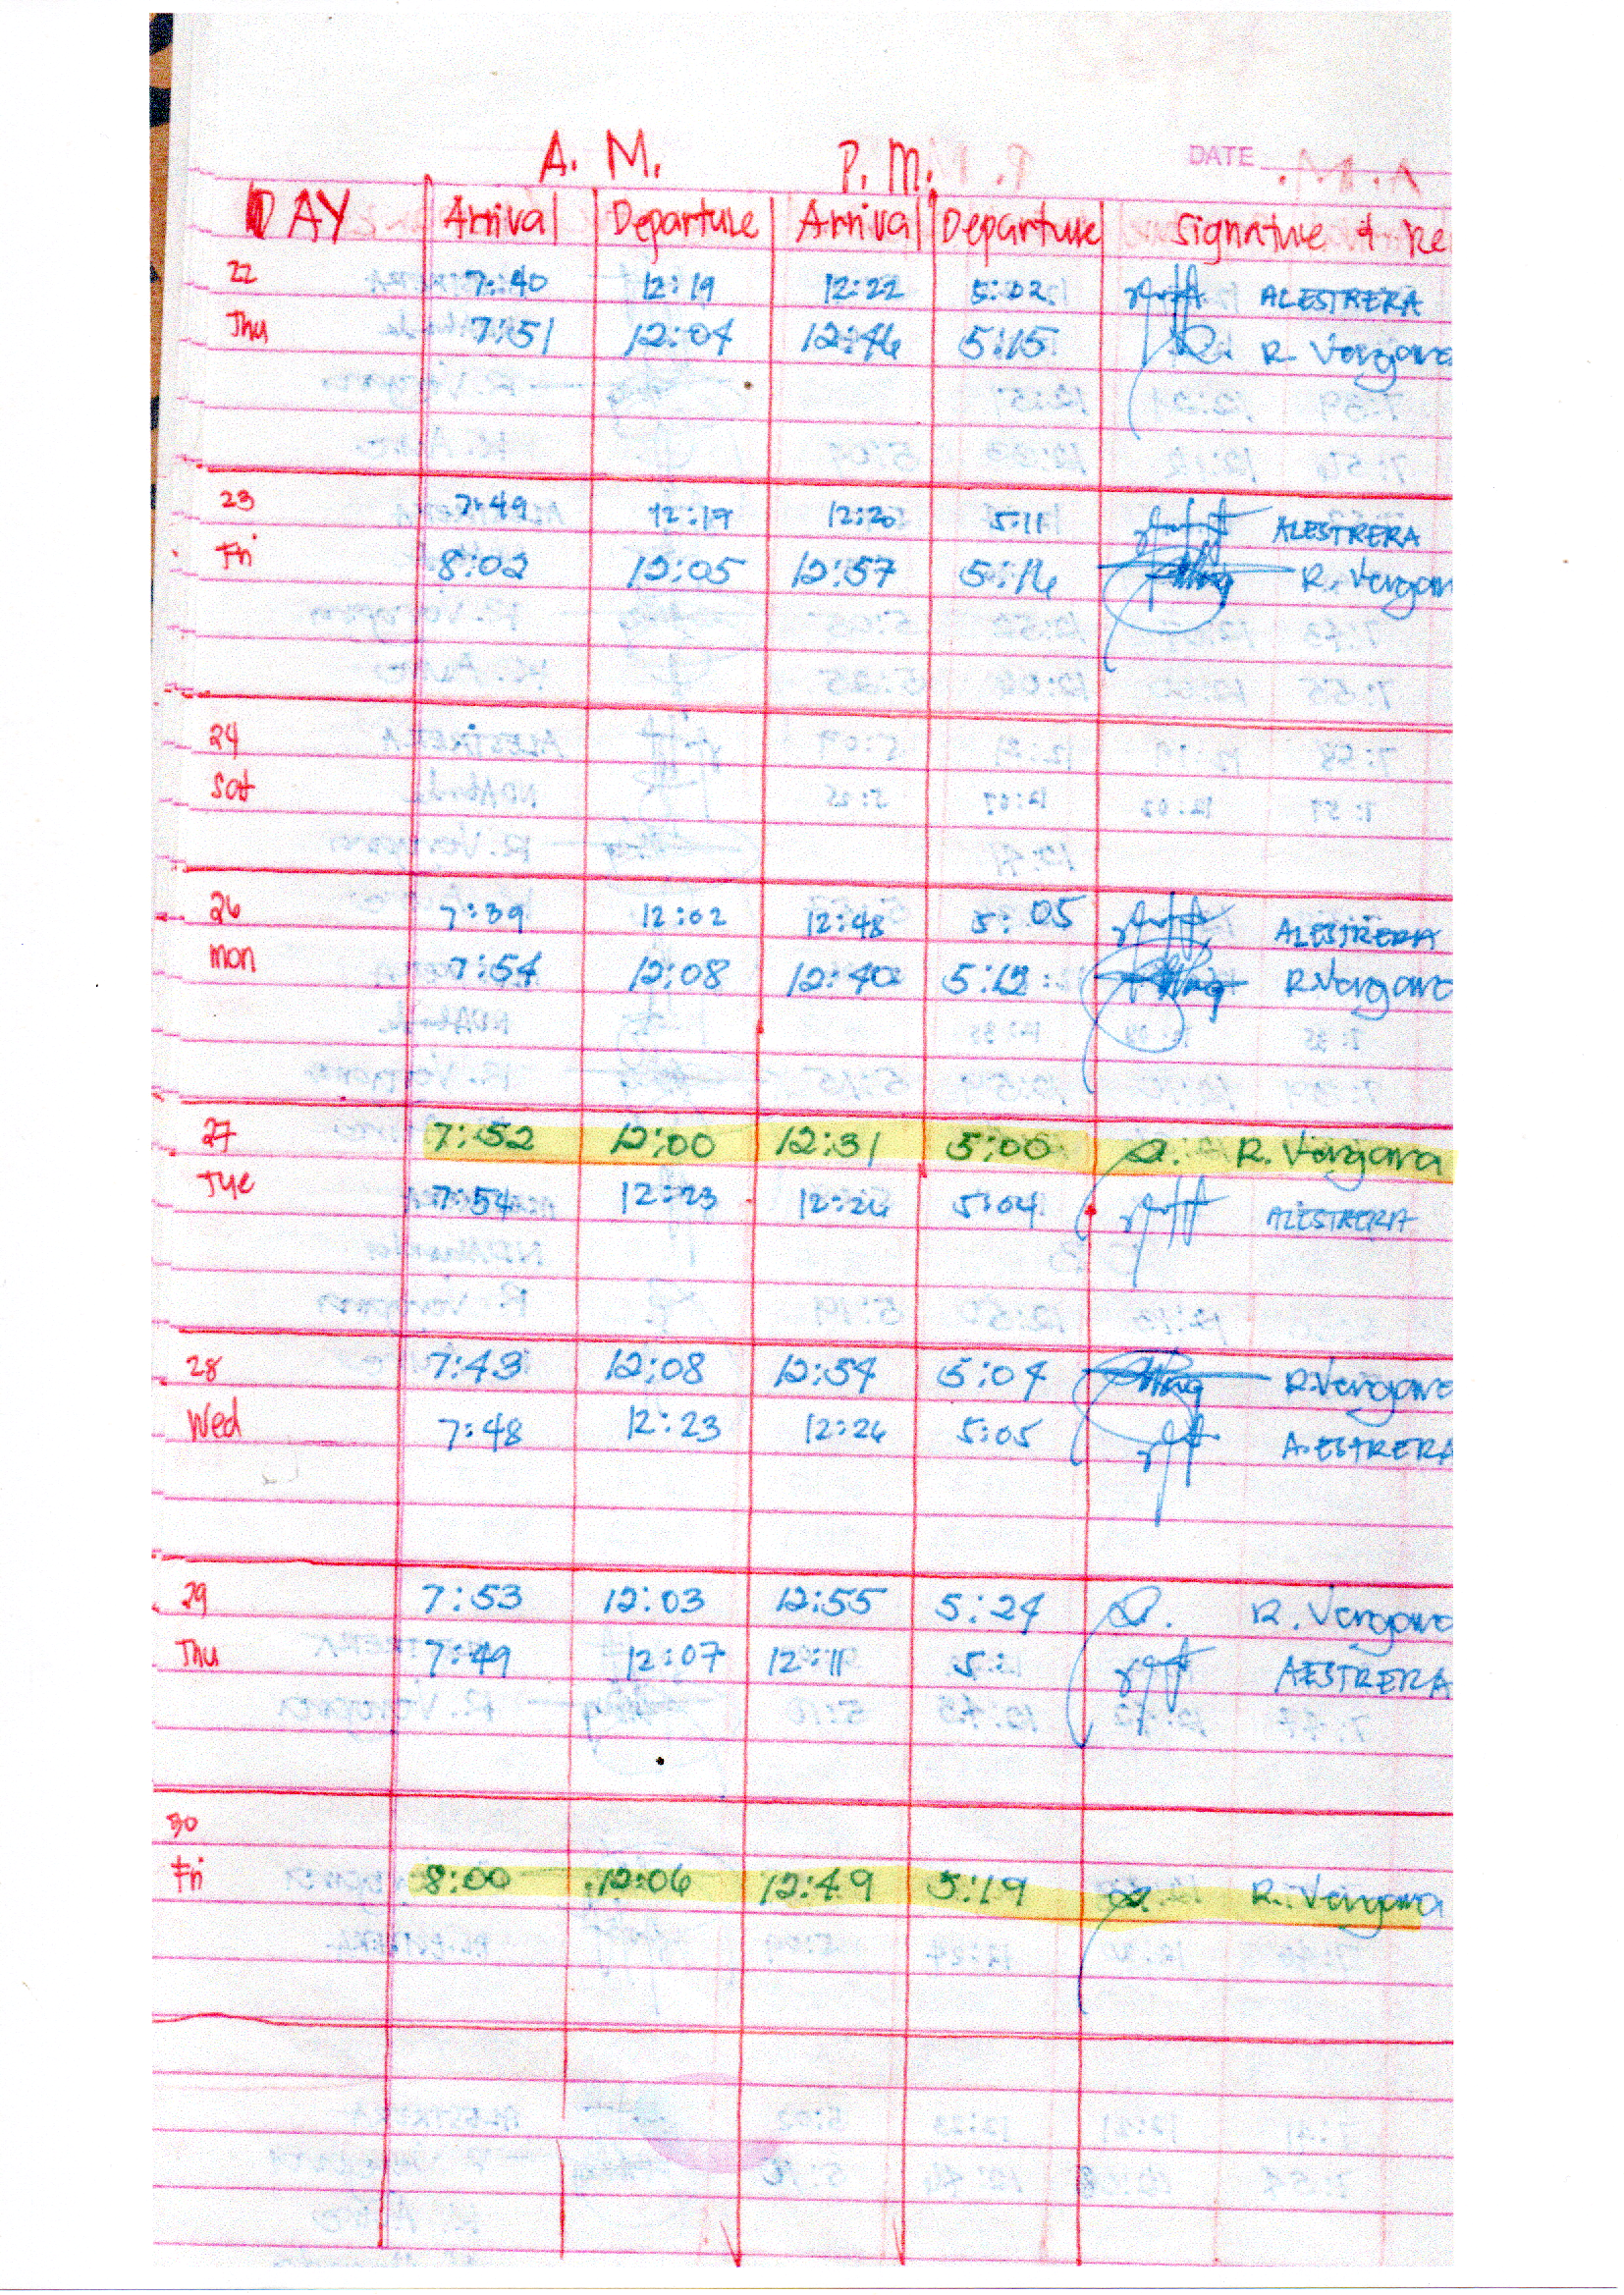 DATE
A. M. P. M.
DAY Arrival Departure Arrival Departure Signature & Re
22 7:40 12:19 12:22 5:02 ALESTRERA
Thu 7:51 12:04 12:46 5:15 R. Vergara
23 7:49 12:19 12:20 5:11 ALESTRERA
Fri 8:02 12:05 12:57 5:16 R. Vergar
24
Sat
26 7:39 12:02 12:48 5:05 ALESTRERA
Mon 7:54 12:08 12:40 5:12 R. Vergara
27 7:52 12:00 12:31 5:00 R. Vergara
Tue 7:54 12:23 12:26 5:04 ALESTRERA
28 7:43 12:08 12:54 5:04 R. Vergara
Wed 7:48 12:23 12:26 5:05 A.ESTRERA
29 7:53 12:03 12:55 5:24 R. Vergara
Thu 7:49 12:07 12:11 5: AESTRERA
30
Fri 8:00 12:06 12:49 5:19 R. Vergara